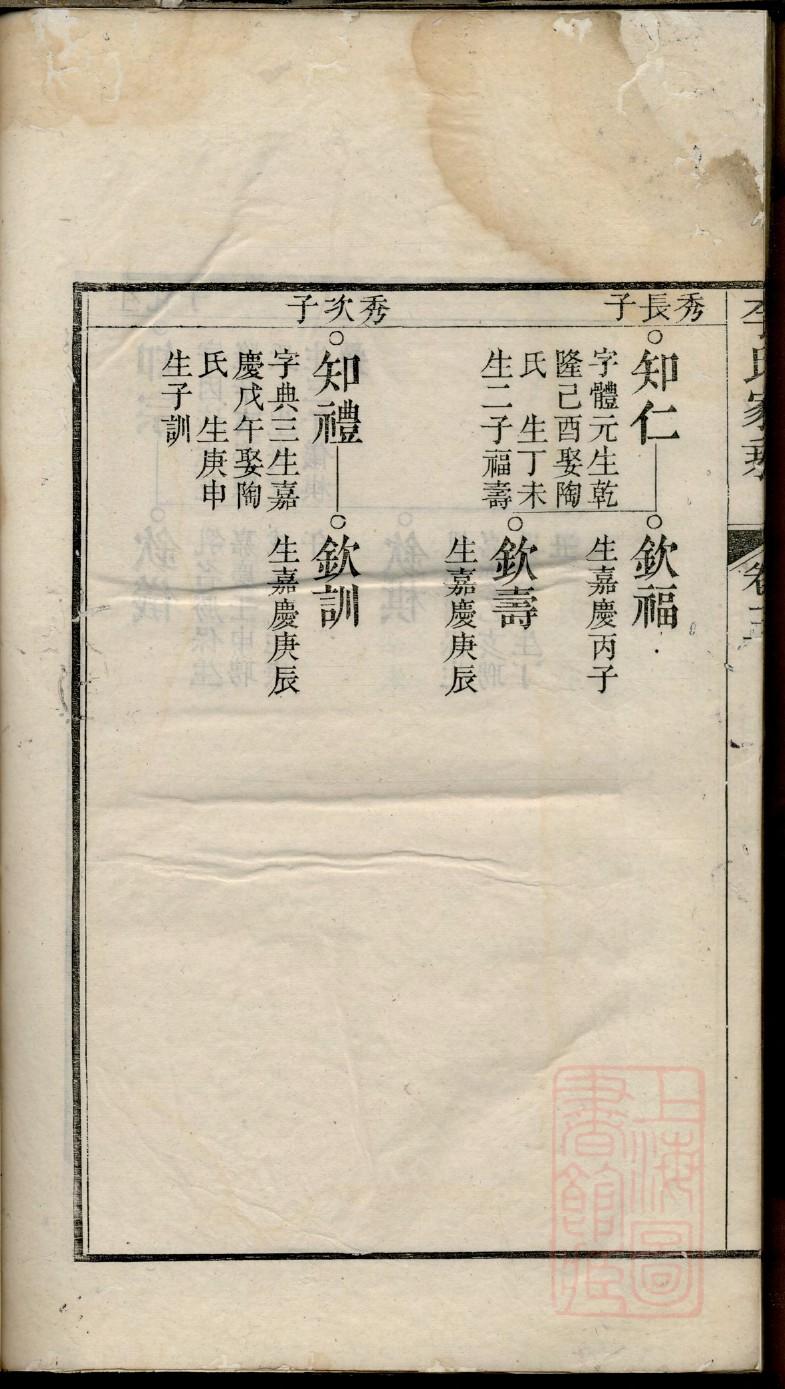 李氏家乘
卷十二
秀長子
知仁
字體元生乾
隆己酉娶陶
氏 生丁未
生二子福壽
欽福
生嘉慶丙子
欽壽
生嘉慶庚辰
秀次子
知禮
字典三生嘉
慶戊午娶陶
氏 生庚申
生子訓
欽訓
生嘉慶庚辰
上海圖
書館藏